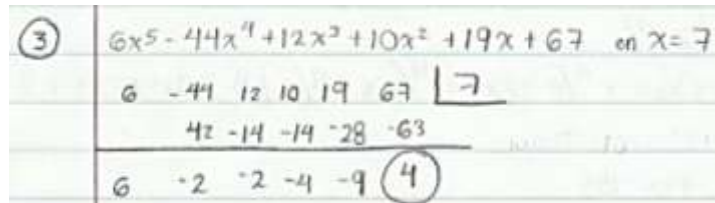 ③ 6x⁵ - 44x⁴ + 12x³ + 10x² + 19x + 67 en x = 7
6 -44 12 10 19 67 | 7
42 -14 -14 -28 -63
6 -2 -2 -4 -9 4